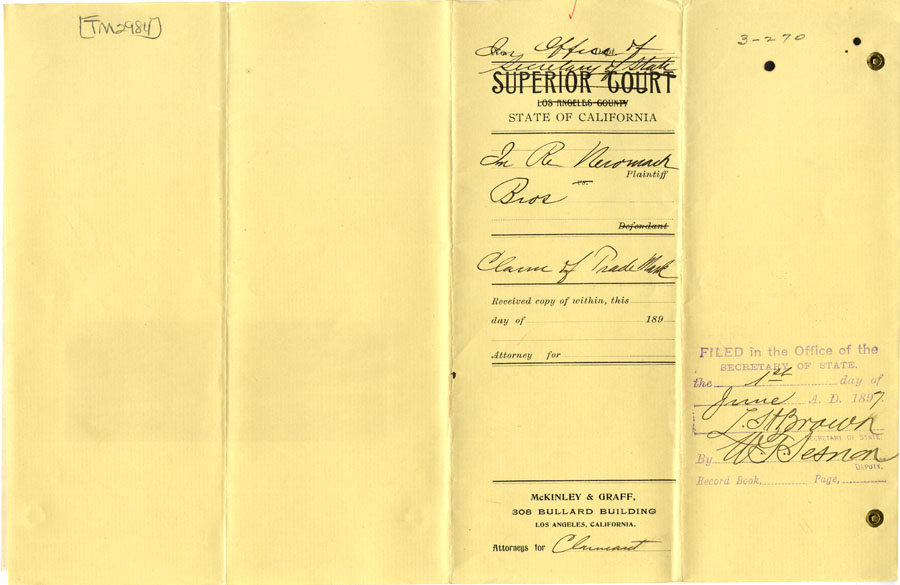 [TM2984]
In Office of
Secretary of State
SUPERIOR COURT
LOS ANGELES COUNTY
STATE OF CALIFORNIA
In Re Neromach
Plaintiff
vs.
Bros
Defendant
Claim of Trade Mark
Received copy of within, this
day of 189
Attorney for
McKINLEY & GRAFF,
308 BULLARD BUILDING
LOS ANGELES, CALIFORNIA.
Attorneys for Claimant
3-270
FILED in the Office of the
SECRETARY OF STATE.
the 1st day of
June A. D. 1897
L. H. Brown
SECRETARY OF STATE.
By W. T. Sesnon
DEPUTY.
Record Book, Page,